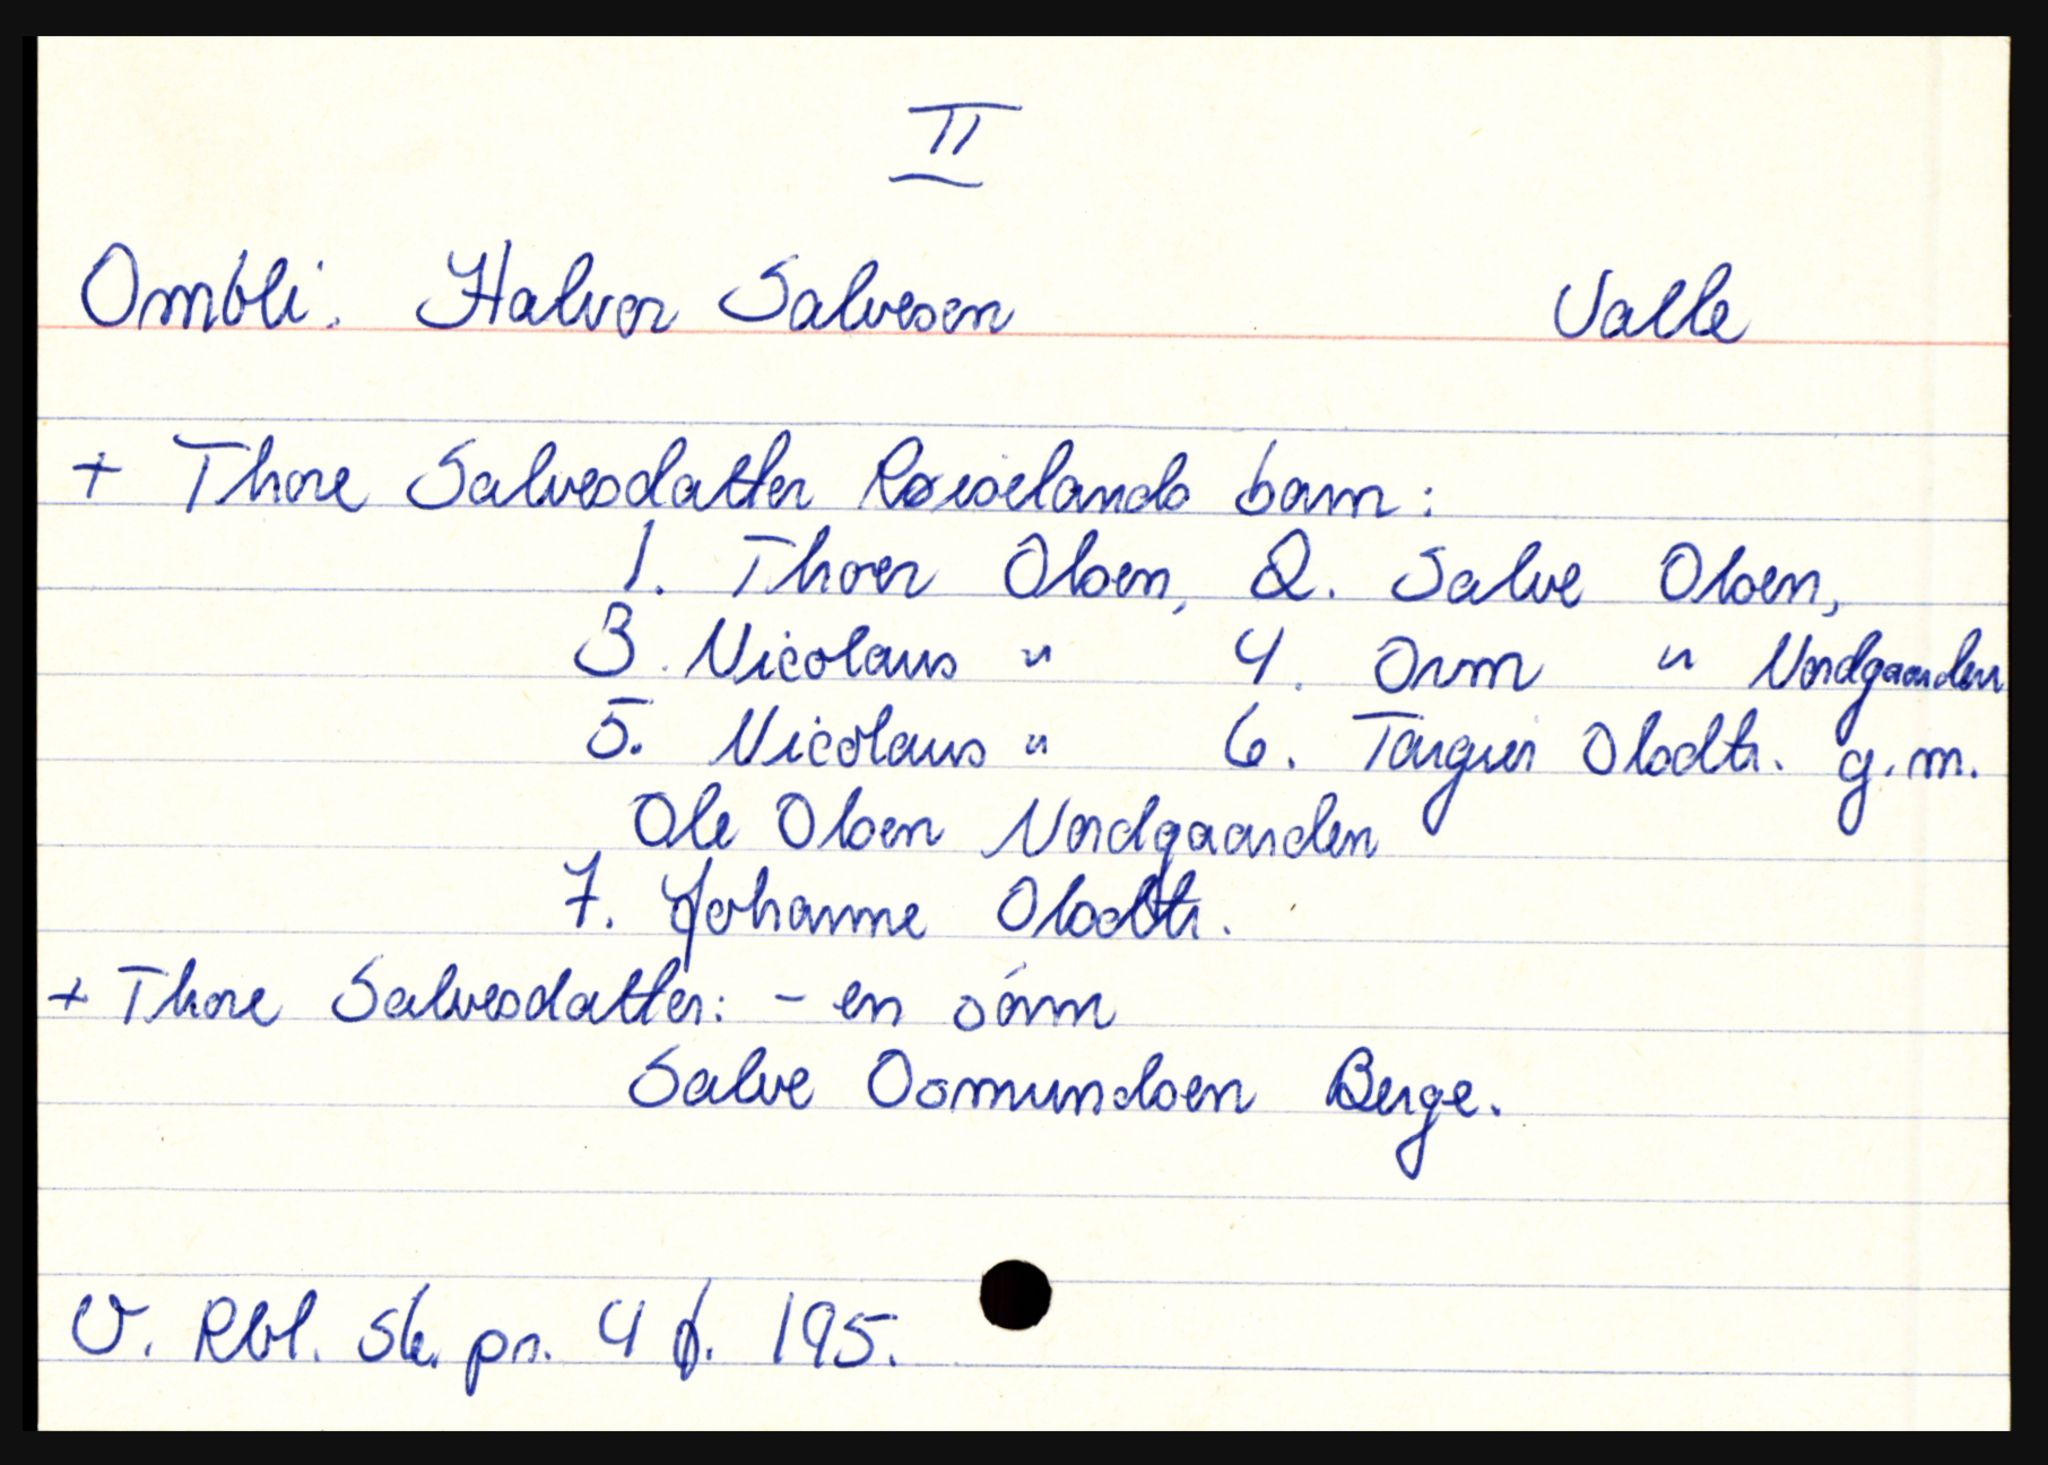 II
Ombli. Halvor Salvesen Valle
+ Thore Salvesdatter Røiselands barn:
1. Thoer Olsen, 2. Salve Olsen,
3. Nicolaus " 4. Orm " Nordgaarden
5. Nicolaus " 6. Targier Olsdtr. g.m.
Ole Olsen Nordgaarden
7. Johanne Olsdtr.
+ Thore Salvesdatter: - en sónn
Salve Osmundsen Berge.
V. Rbl. Sk. pr. 4 f. 195.